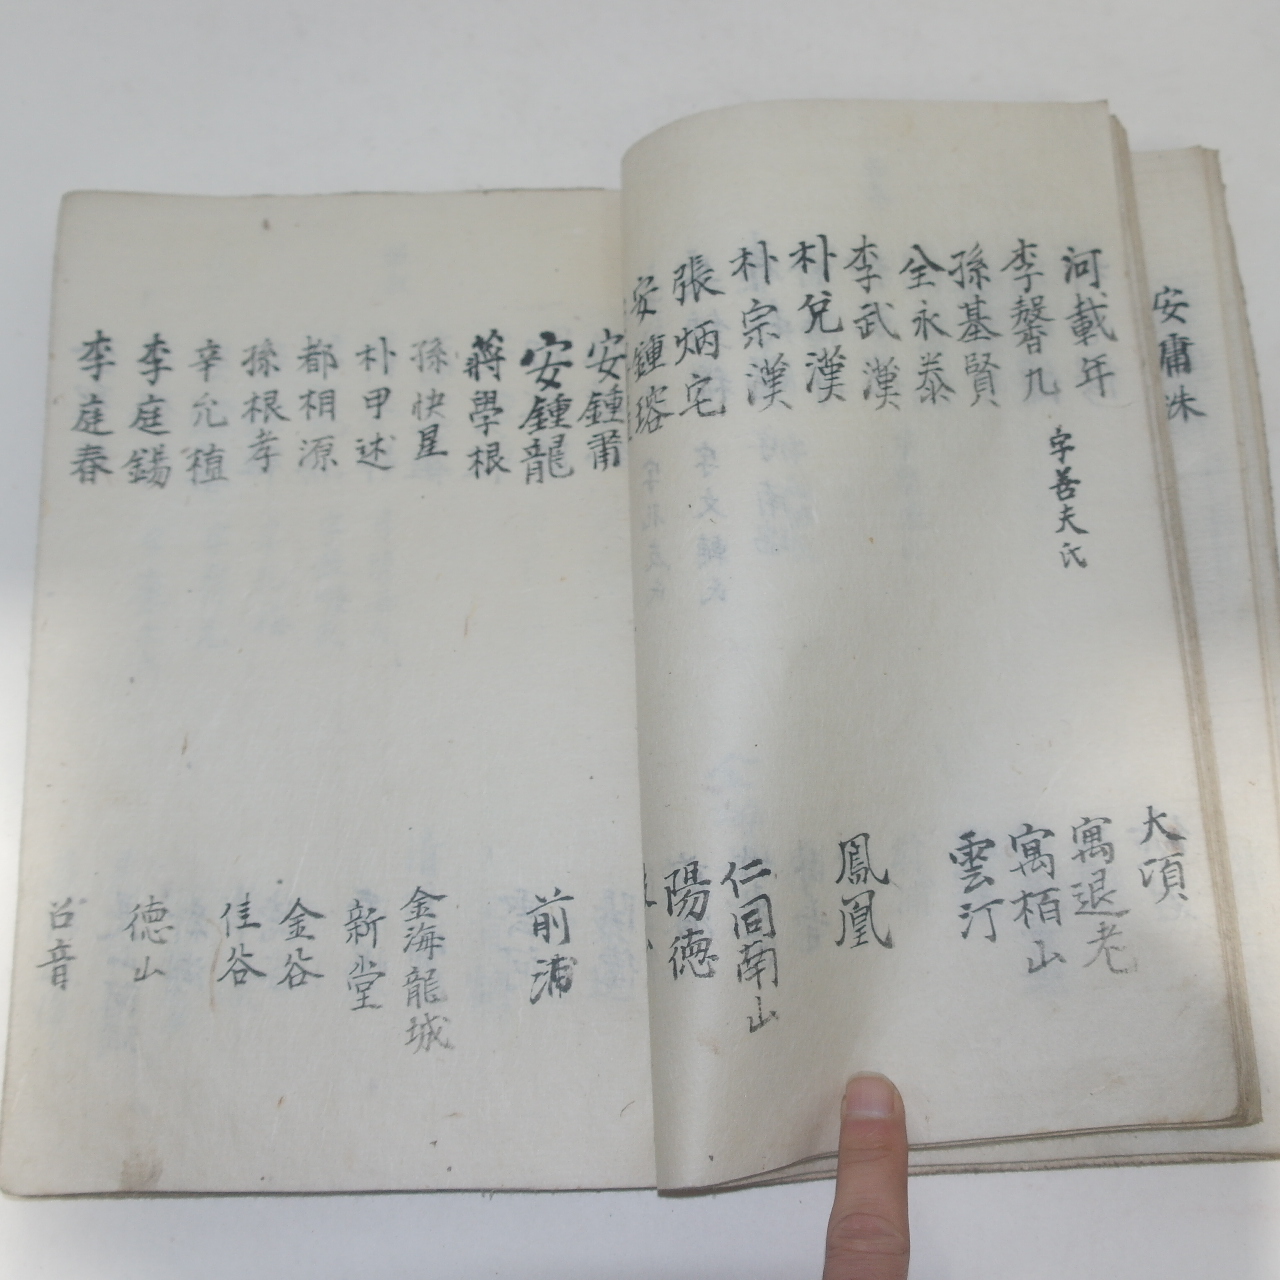 安庸洙
河載年 大項
李馨九 字善夫氏 寓退老
孫基賢 寓栢山
全永泰 雲汀
李武漢
朴兌漢 鳳凰
朴宗漢
張炳宅 仁同南山
安鍾瑢 陽德
安鍾莆
安鍾龍 前浦
蔣學根
孫快星 金海龍城
朴甲述 新堂
都相源 金谷
孫根孝 佳谷
辛允植
李庭錫 德山
李庭春 召音